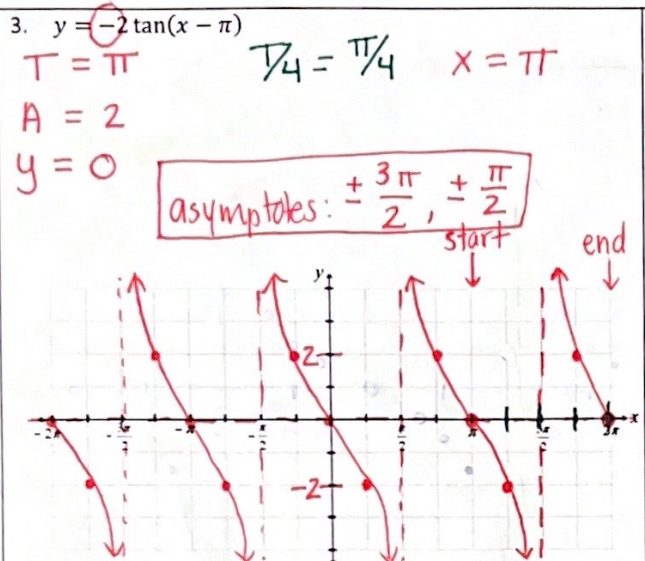 3. y = -2 tan(x − π)
T = π
T/4 = π/4
x = π
A = 2
y = 0
asymptotes: ± 3π/2, ± π/2
start
end
y
2
-2π
-3π/2
-π
-π/2
π/2
π
3π/2
x
-2